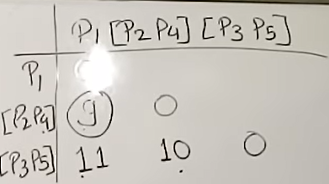 P1 [P2 P4] [P3 P5]
P1
[P2P4] 9 0
[P3P5] 11 10 0